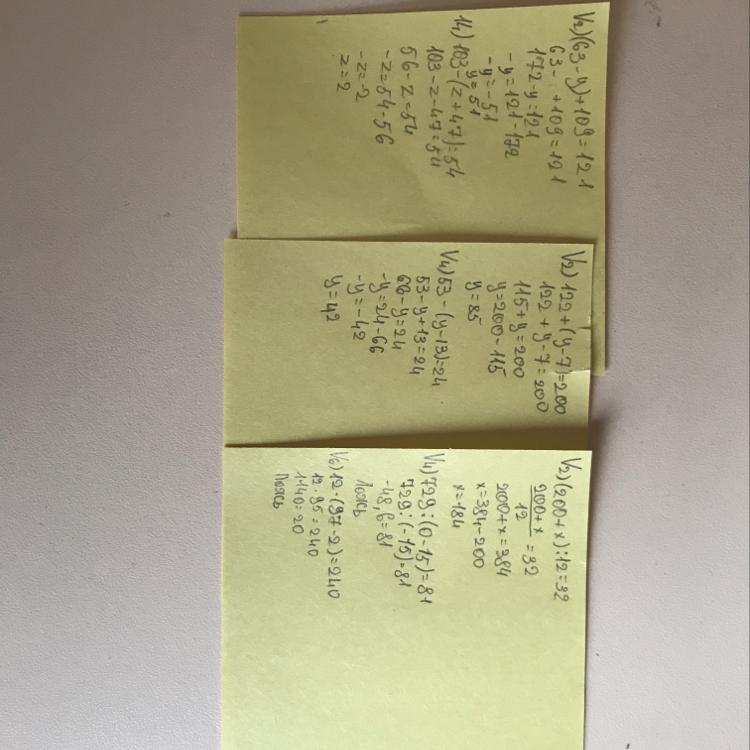 V2)(63-y)+109=121
63- +109=121
172-y=121
-y=121-172
-y=-51
y=51
14) 103-(z+47)=54
103-z-47=54
56-z=54
-z=54-56
-z=-2
z=2
V2) 122+(y-7)=200
122+y-7=200
115+y=200
y=200-115
y=85
V4) 53-(y-13)=24
53-y+13=24
66-y=24
-y=24-66
-y=-42
y=42
V2)(200+x):12=32
200+x
12 =32
200+x=384
x=384-200
x=184
V4) 729:(0-15)=81
729:(-15)=81
-48,6=81
Ложь
V6) 12·(97-2)=240
12·95=240
1140=20
Ложь